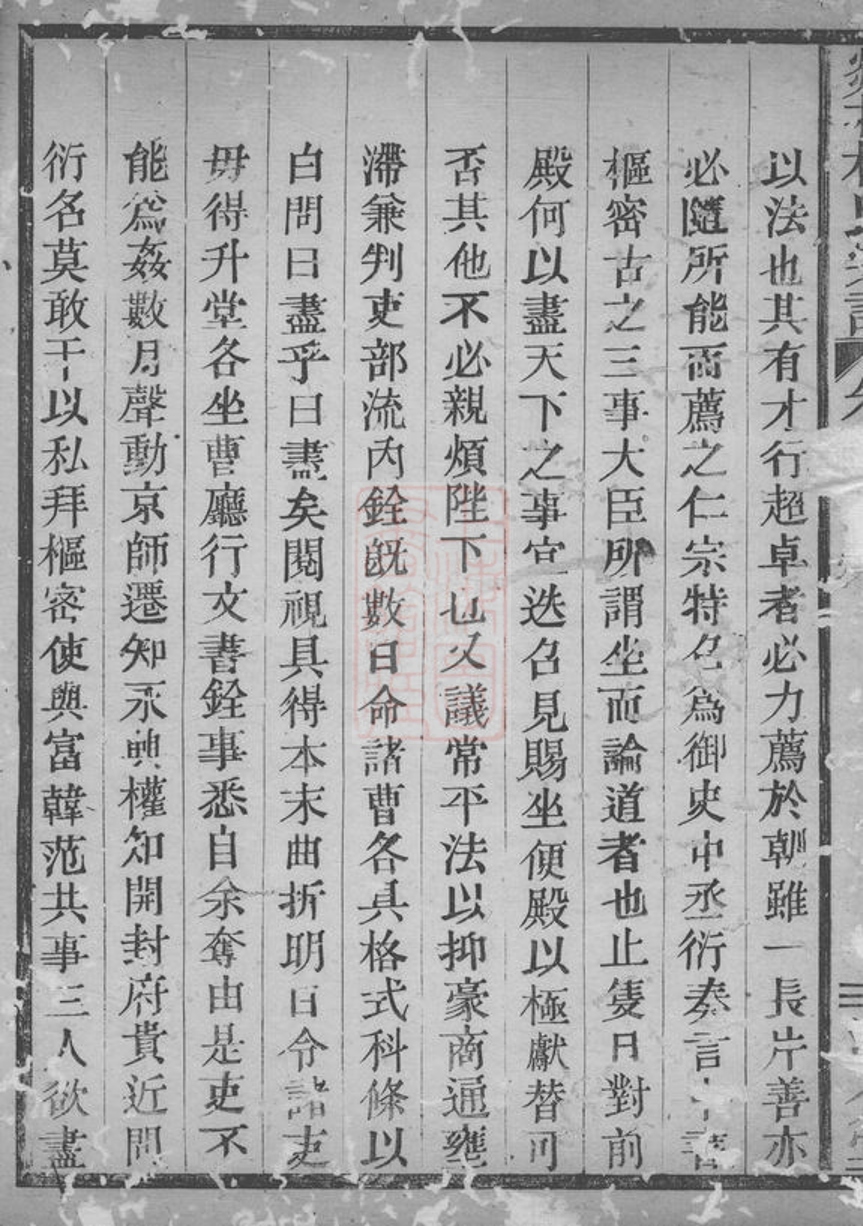 以法也其有才行超卓者必力薦於朝雖一長片善亦
必隨所能而薦之仁宗特名為御史中丞衍奏言中書
樞密古之三事大臣所謂坐而論道者也止隻日對前
殿何以盡天下之事宜迭召見賜坐便殿以極獻替可
否其他不必親煩陛下也又議常平法以抑豪商通壅
滯兼判吏部流內銓旣數日命諸曹各具格式科條以
白問曰盡乎曰盡矣閱視具得本末曲折明日令諸吏
毋得升堂各坐曹廳行文書銓事悉自余奪由是吏不
能爲姦數月聲動京師遷知永興權知開封府貴近聞
衍名莫敢干以私拜樞密使與富韓范共事三人欲盡